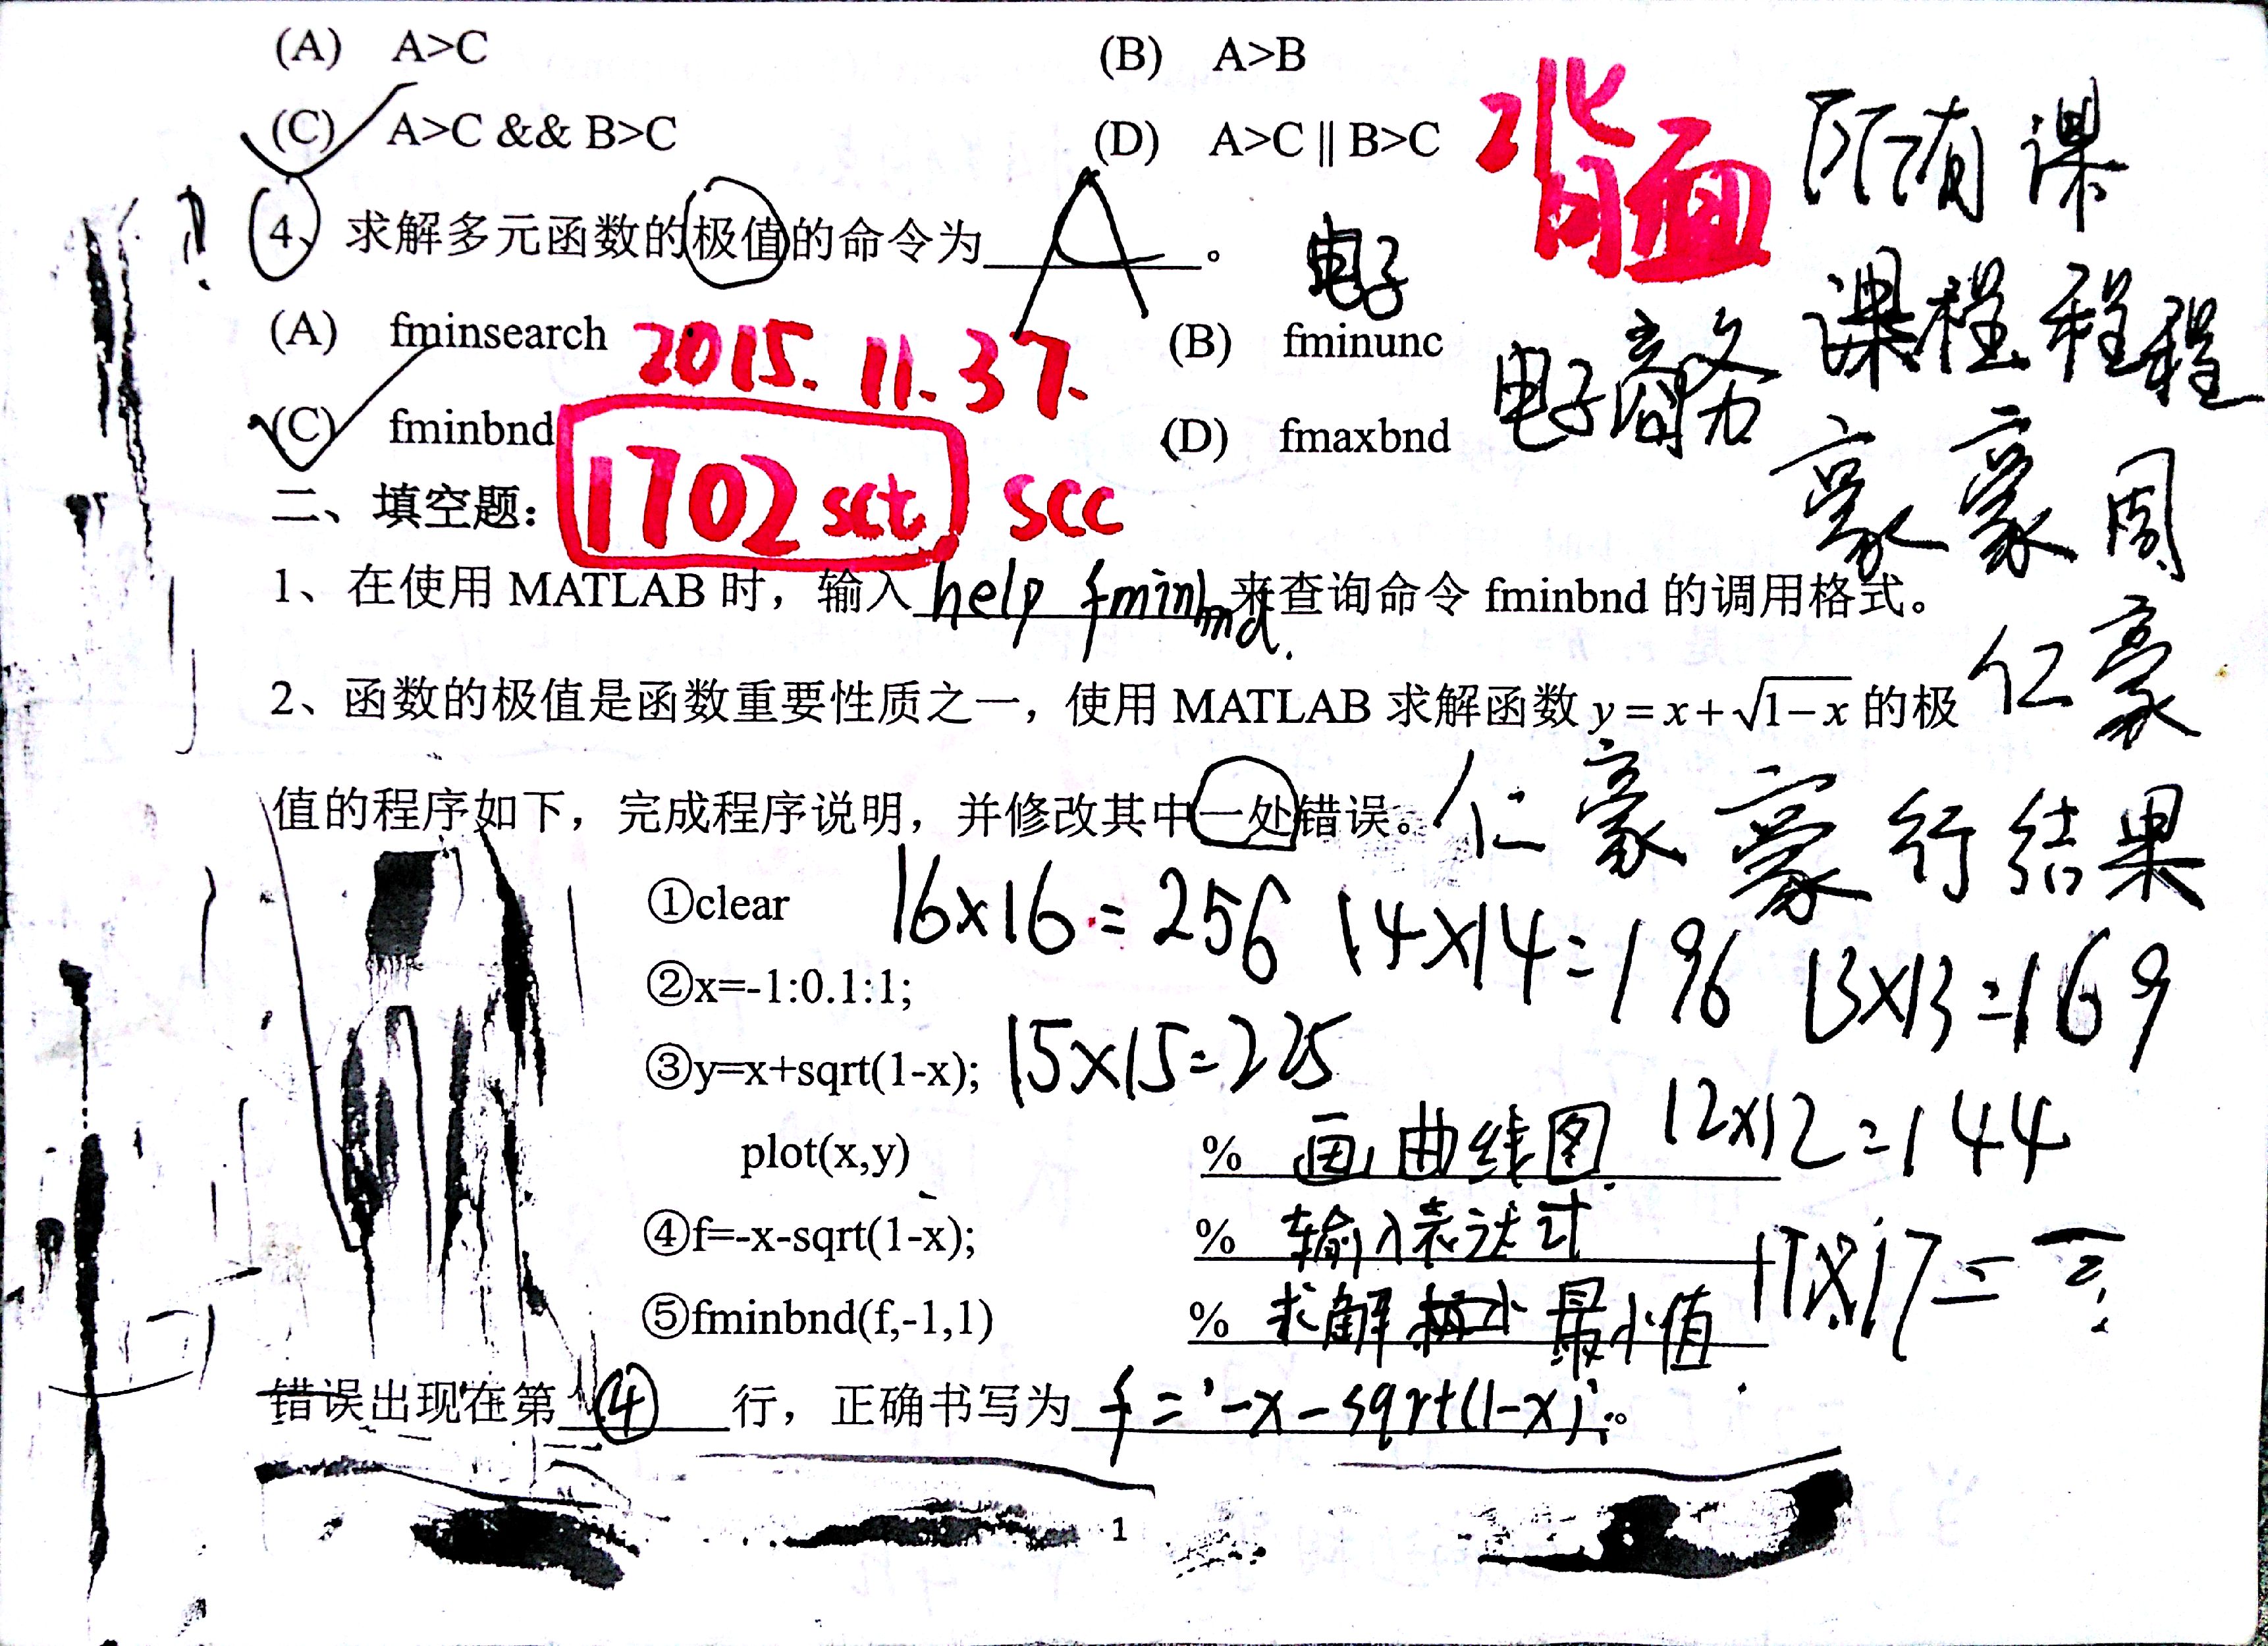 (A) A>C (B) A>B
(C) A>C && B>C (D) A>C || B>C
背面
所有课
4、求解多元函数的极值的命令为 A 。
电子
课程程程
(A) fminsearch (B) fminunc
2015.11.37.
电子商务
(C) fminbnd (D) fmaxbnd
豪豪周
二、填空题:
1702 sct scc
1、在使用 MATLAB 时，输入 help fminbnd 来查询命令 fminbnd 的调用格式。
仁豪
2、函数的极值是函数重要性质之一，使用 MATLAB 求解函数 y=x+√1-x 的极
值的程序如下，完成程序说明，并修改其中一处错误。
仁豪豪行结果
①clear
16x16=256 14x14=196 13x13=169
②x=-1:0.1:1;
③y=x+sqrt(1-x); 15x15=225
plot(x,y) % 画曲线图 12x12=144
④f=-x-sqrt(1-x); % 输入表达式
17x17=
⑤fminbnd(f,-1,1) % 求解 最小值
错误出现在第 ④ 行，正确书写为 f='-x-sqrt(1-x)'; 。
1